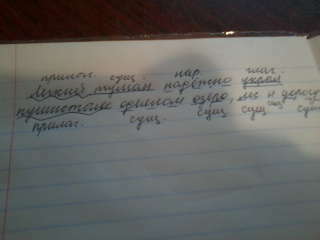 прилаг. сущ. нар. глаг.
Легкий туман плотно укрыл
пушистым одеялом озеро, лес и дорогу
прилаг. сущ. сущ сущ сущ